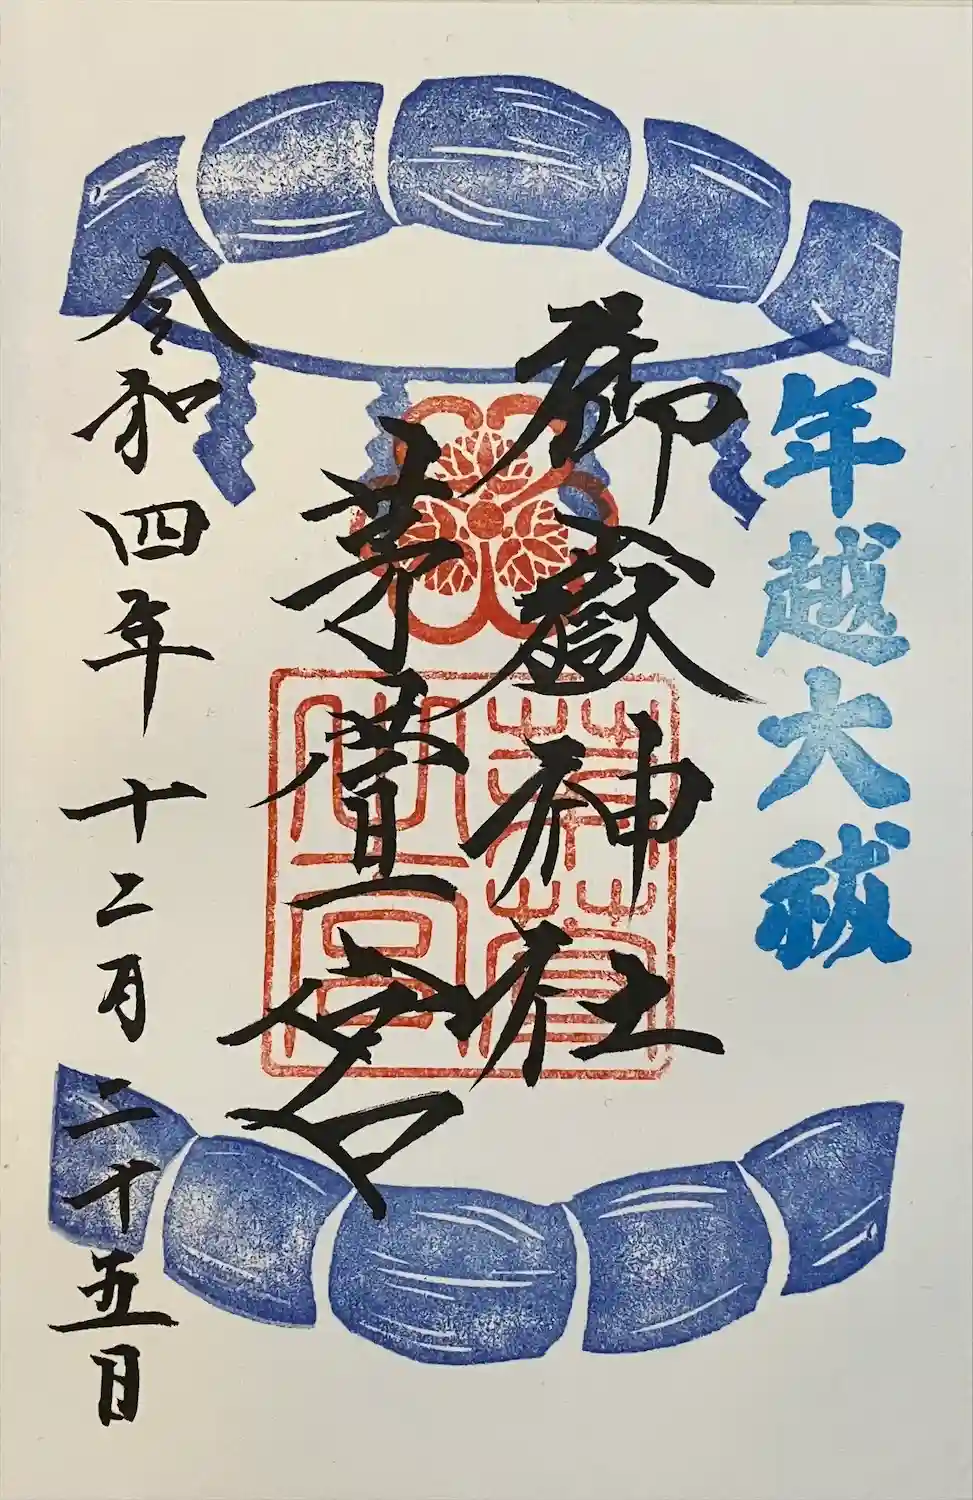 年越大祓
御嶽神社
茅萱宮
令和四年 十二月二十五日
茅萱之宮